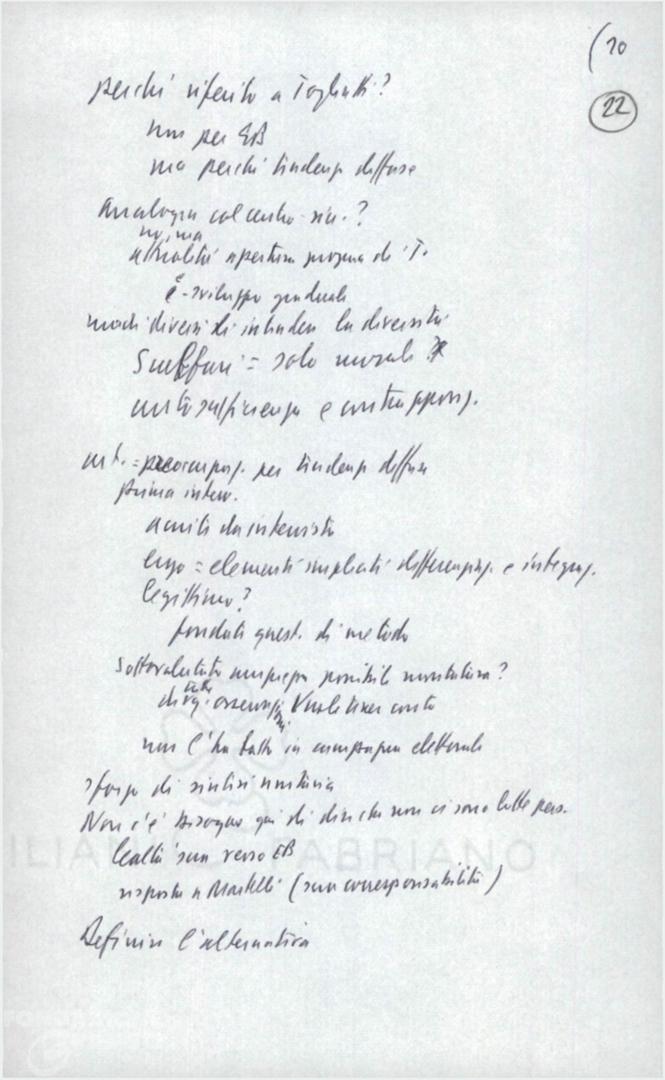 (20
22
perché riferito a Togliatti?
non per EB
ma perché tendenze diffuse
Analogia col centro-sin.?
no, ma
attualità apertura propria di T.
è sviluppo graduale
modi diversi di intendere la diversità
Scalfari = solo morale
autosufficienza e contrappos.
art. = preoccupaz. per tendenze diffuse
prima interv.
acuita da intervista
ergo = elementi impliciti differenziaz. e integraz.
legittimo?
fondata quest. di metodo
sottovalutata ampiezza possibile montatura?
osservaz. tener conto
non l'ho fatto in campagna elettorale
sforzo di sintesi unitaria
Non c'è bisogno qui di dire che non ci sono lotte pers.
lealtà verso EB
risposta a Martelli ( corresponsabilità)
Definire l'alternativa
ILIAN FABRIANO